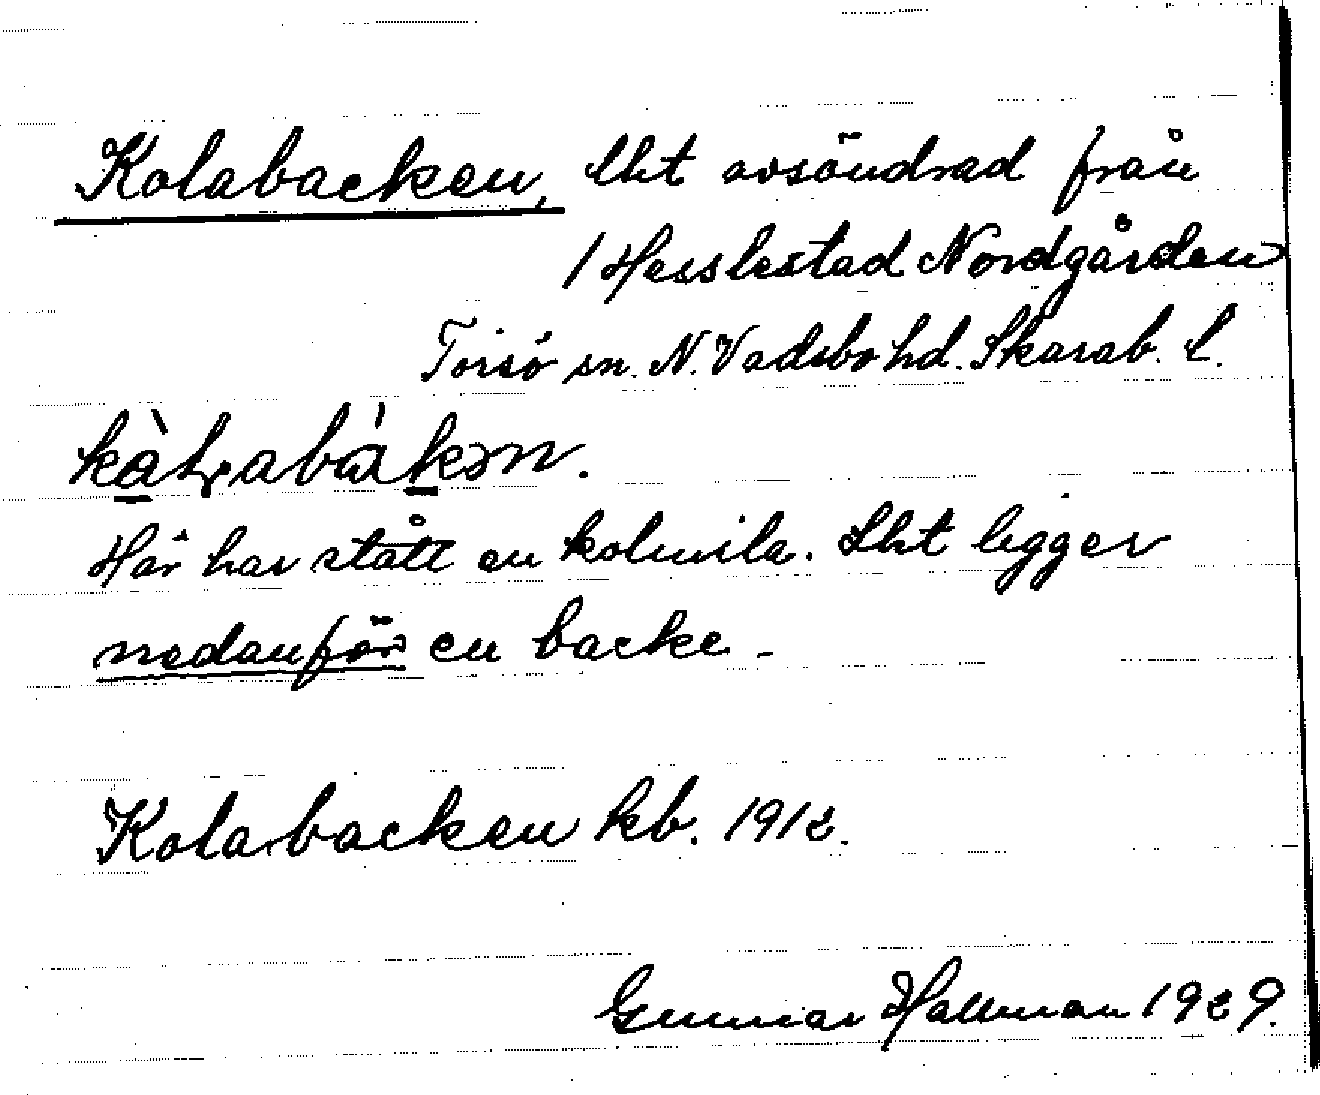 Kolabacken, lht avsöndrad från
1 Hesslestad Nordgården
Torsö sn. N. Vadsbo hd. Skarab. l.
kàɽabákən.
Här har stått en kolmila. Lht ligger
nedanför en backe.
Kolabacken kb. 1912.
Gunnar Hallman 1929.